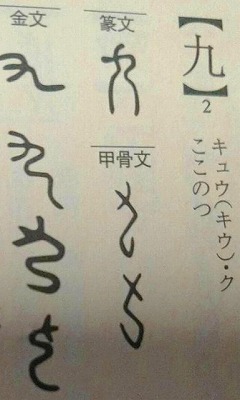 【九】2
キュウ(キウ)・ク
ここのつ
篆文
甲骨文
金文